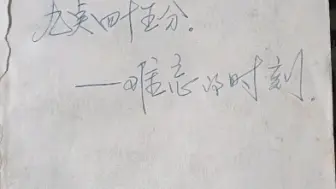 九点四十五分.
——难忘的时刻.